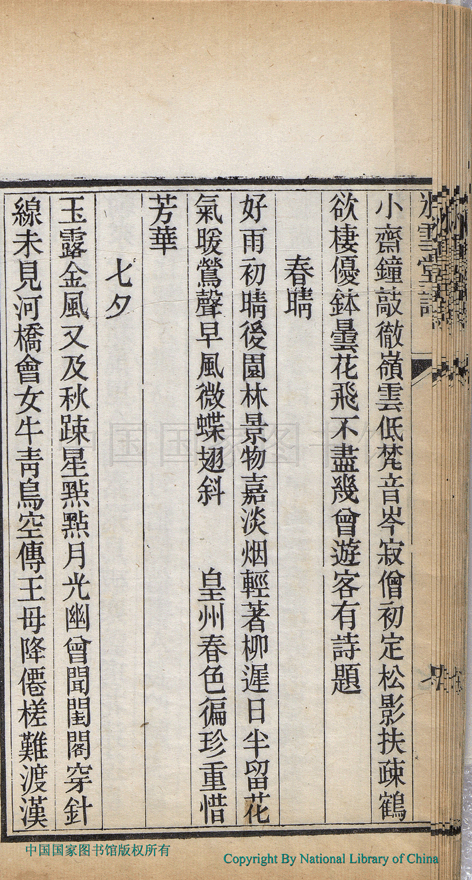 冰雪堂詩
小齋鐘敲徹嶺雲低梵音岑寂僧初定松影扶疎鶴
欲棲優鉢曇花飛不盡幾曾遊客有詩題
春晴
好雨初晴後園林景物嘉淡烟輕著柳遲日半留花
氣暖鶯聲早風微蝶翅斜 皇州春色徧珍重惜
芳華
七夕
玉露金風又及秋疎星點點月光幽曾聞閨閣穿針
線未見河橋會女牛靑鳥空傳王母降僊槎難渡漢
中国国家图书馆版权所有
Copyright By National Library of China